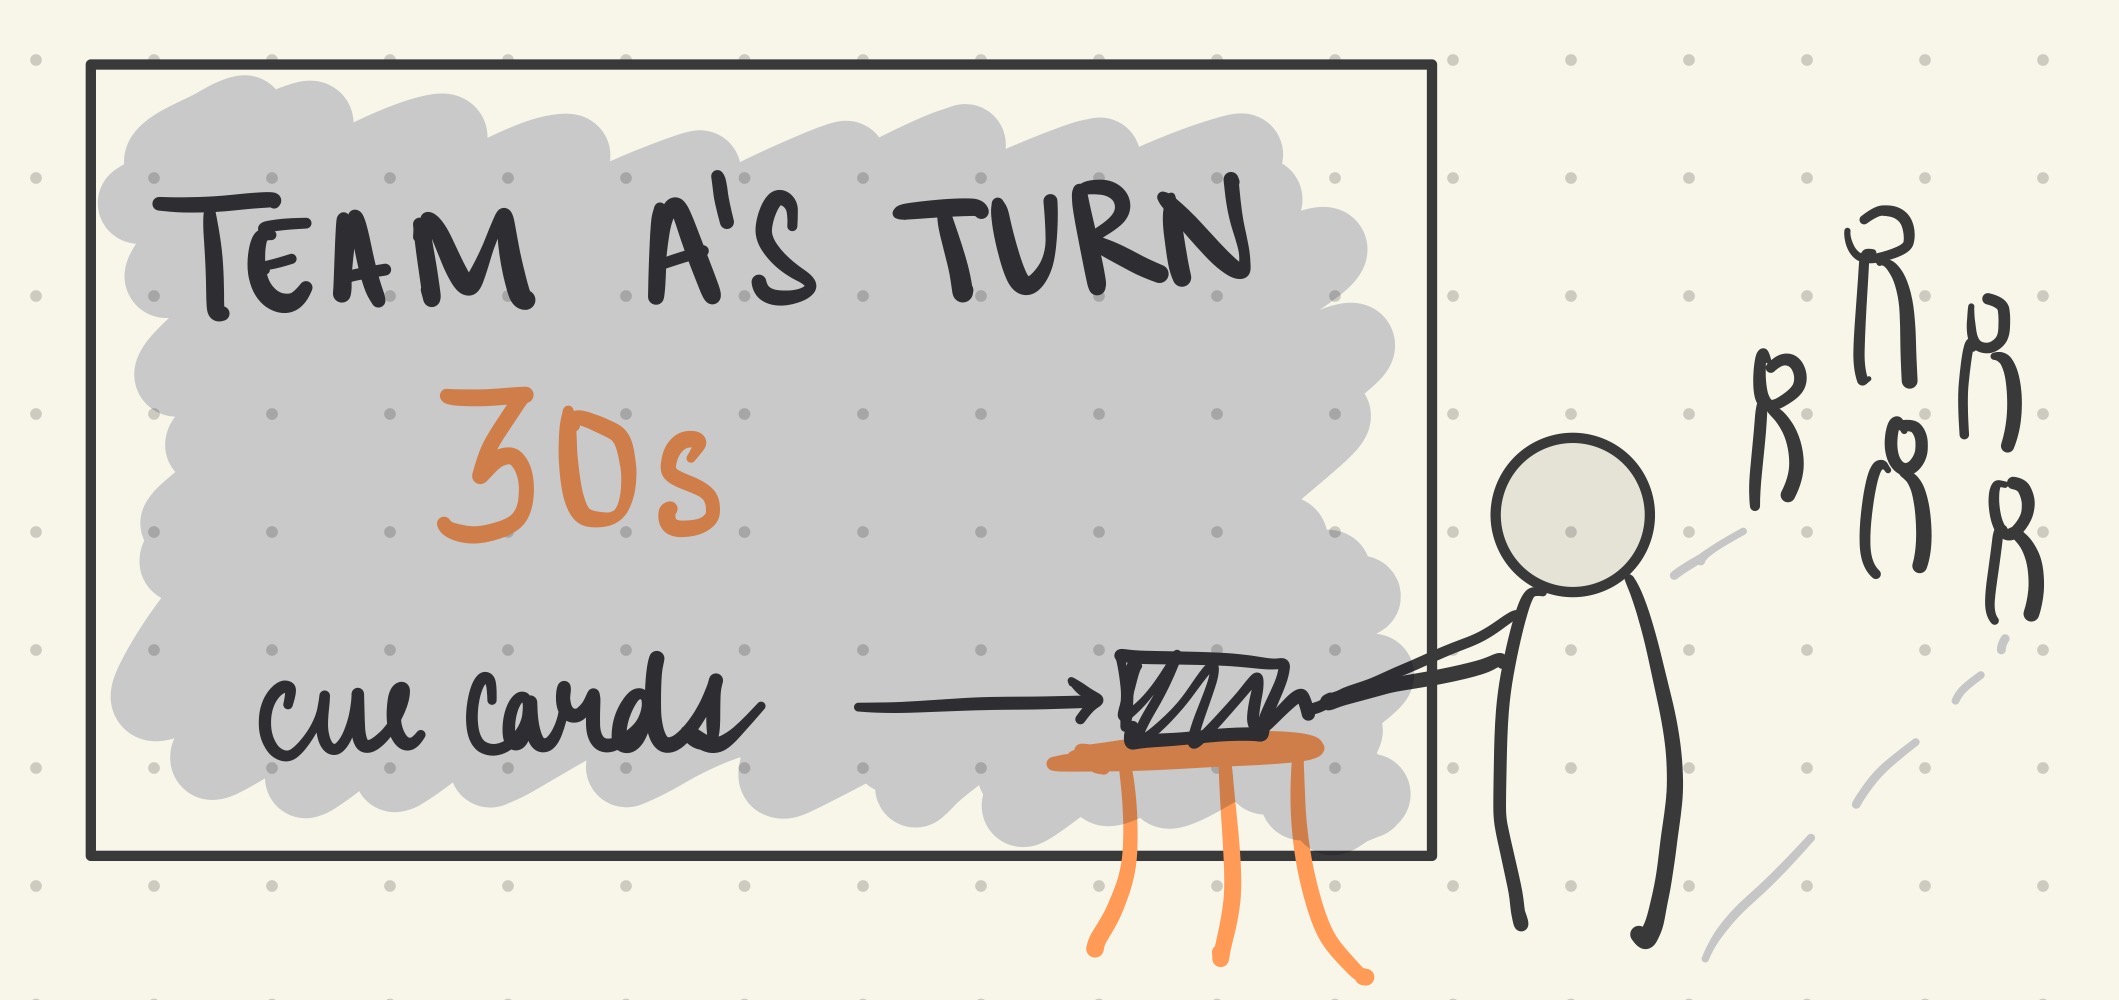 TEAM A'S TURN
30s
cue cards